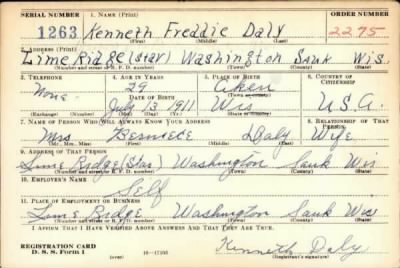 SERIAL NUMBER 1. NAME (Print) ORDER NUMBER
1263 Kenneth Freddie Daly 2295
(First) (Middle) (Last)
2. ADDRESS (Print)
Lime Ridge (Star) Washington Sauk Wis.
(Number and street or R. F. D. number) (Town) (County) (State)
3. TELEPHONE 4. AGE IN YEARS 5. PLACE OF BIRTH 6. COUNTRY OF CITIZENSHIP
None 29
DATE OF BIRTH (Town or county)
July 13 1911 Wis U.S.A.
(Mo.) (Day) (Yr.) (State or country)
7. NAME OF PERSON WHO WILL ALWAYS KNOW YOUR ADDRESS 8. RELATIONSHIP OF THAT PERSON
Mrs Berniece Daly Wife
(Mr., Mrs., Miss) (First) (Middle) (Last)
9. ADDRESS OF THAT PERSON
Lime Ridge (Star) Washington Sauk Wis
(Number and street or R. F. D. number) (Town) (County) (State)
10. EMPLOYER'S NAME
Self
11. PLACE OF EMPLOYMENT OR BUSINESS
Lime Ridge Washington Sauk Wis
(Number and street or R. F. D. number) (Town) (County) (State)
I AFFIRM THAT I HAVE VERIFIED ABOVE ANSWERS AND THAT THEY ARE TRUE.
Kenneth Daly
REGISTRATION CARD
D. S. S. Form 1 (over) (Registrant's signature)